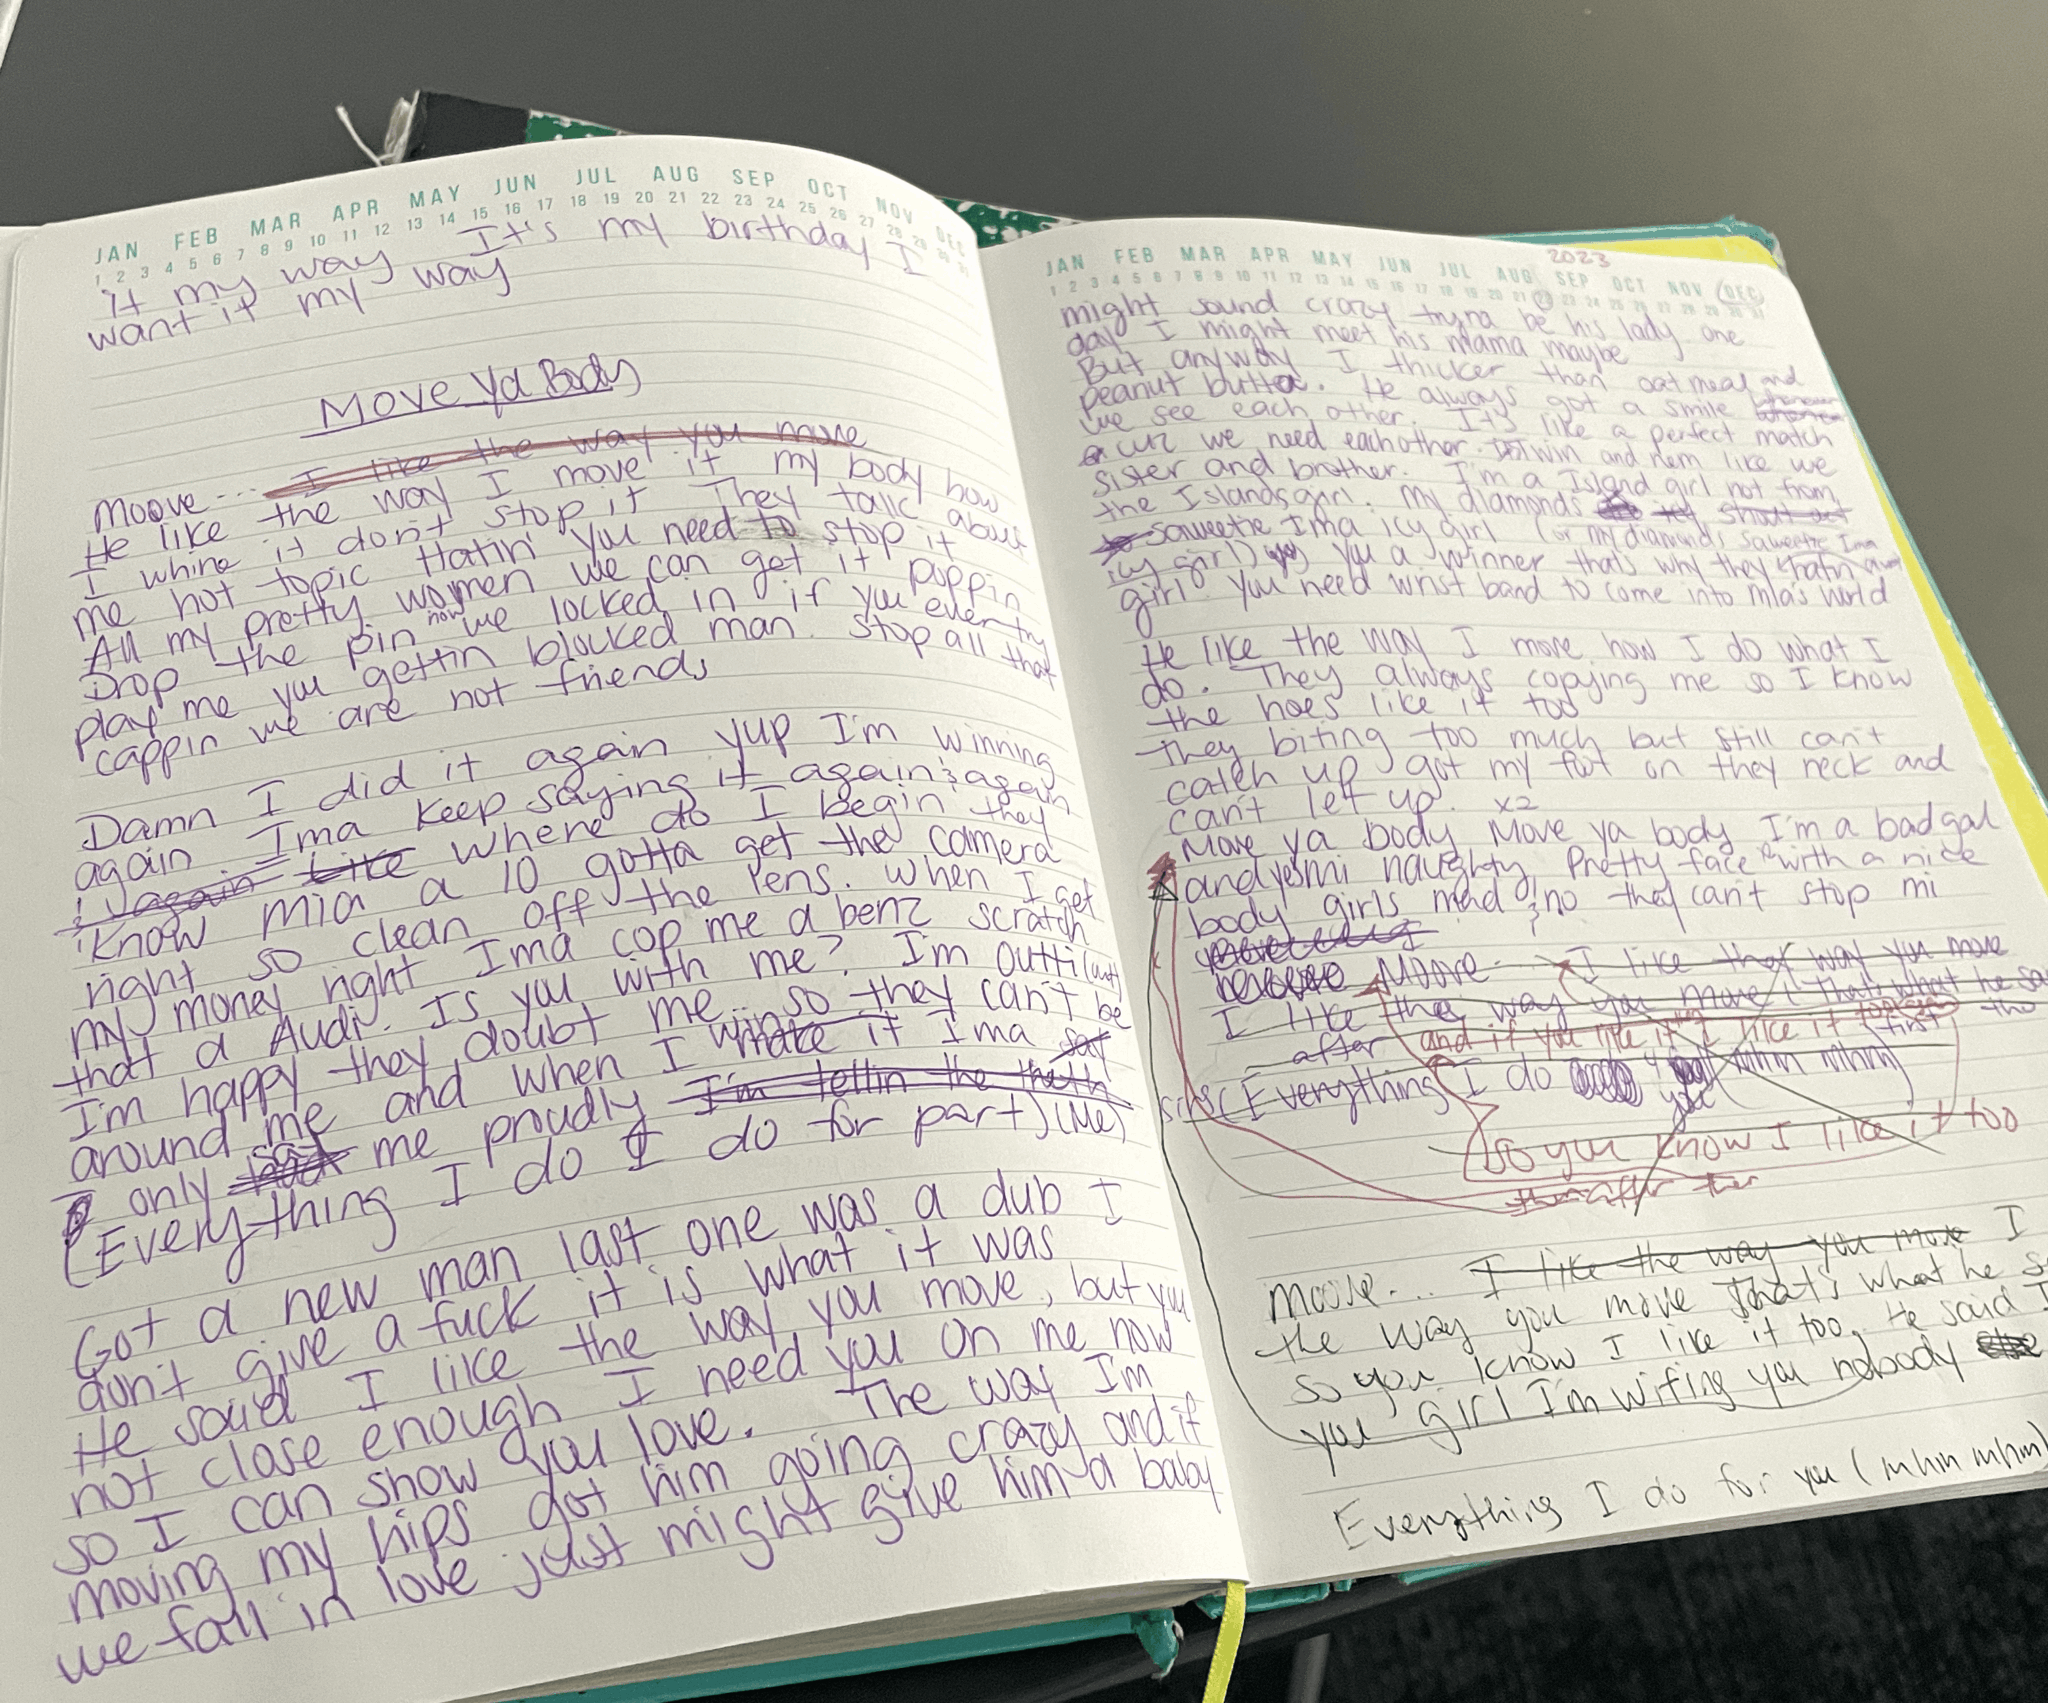 JAN FEB MAR APR MAY JUN JUL AUG SEP OCT NOV DEC
1 2 3 4 5 6 7 8 9 10 11 12 13 14 15 16 17 18 19 20 21 22 23 24 25 26 27 28 29 30 31
It's my birthday I
it my way
want it my way
Move Ya Body
Moove... I like the way you move
He like the way I move it my body how
I whine it don't stop it They talk about
me hot topic Hatin' you need to stop it
All my pretty women we can get it poppin
Drop the pin now we locked in if you ever try
play me you gettin blocked man. Stop all that
cappin we are not friends
Damn I did it again yup I'm winning
again Ima keep saying it again & again
& again Like where do I begin they
know Mia a 10 gotta get the camera
right so clean off the lens. When I get
my money right Ima cop me a benz scratch
that a Audi. Is you with me? I'm outti (out)
I'm happy they doubt me so they can't be
around me and when I win make it Ima say
only say me proudly I'm tellin the truth
(Everything I do I do for part) (Me)
Got a new man last one was a dub I
don't give a fuck it is what it was
He said I like the way you move, but you
not close enough I need you on me now
so I can show you love. The way I'm
moving my hips got him going crazy and if
we fall in love just might give him a baby
2023
JAN FEB MAR APR MAY JUN JUL AUG SEP OCT NOV DEC
1 2 3 4 5 6 7 8 9 10 11 12 13 14 15 16 17 18 19 20 21 22 23 24 25 26 27 28 29 30 31
might sound crazy tryna be his lady one
day I might meet his mama maybe
But anyway I thicker than oatmeal and
peanut butta. He always got a smile
we see each other. It's like a perfect match
cuz we need eachother. twin and nem like we
sister and brother. I'm a Island girl not from
the Islands girl. My diamonds
saweetie Ima icy girl (or my diamonds saweetie Ima
icy girl) you a winner that's why they hatin
girl. You need wrist band to come into Mia's world
He like the way I move how I do what I
do. They always copying me so I know
the hoes like it too
they biting too much but still can't
catch up got my foot on they neck and
can't let up. x2
Move ya body Move ya body I'm a bad gal
and yes mi naughty Pretty face with a nice
body girls mad & no they can't stop mi
Moove I like the way you move
I like the way you move (that's what he
after and if you like it I like it first
(Everything I do you mhm mhm)
so you know I like it too
thereafter
Moove... I like the way you move I
the way you move that's what he
so you know I like it too. He said I
you girl I'm wifing you nobody
Everything I do for you (mhm mhm)